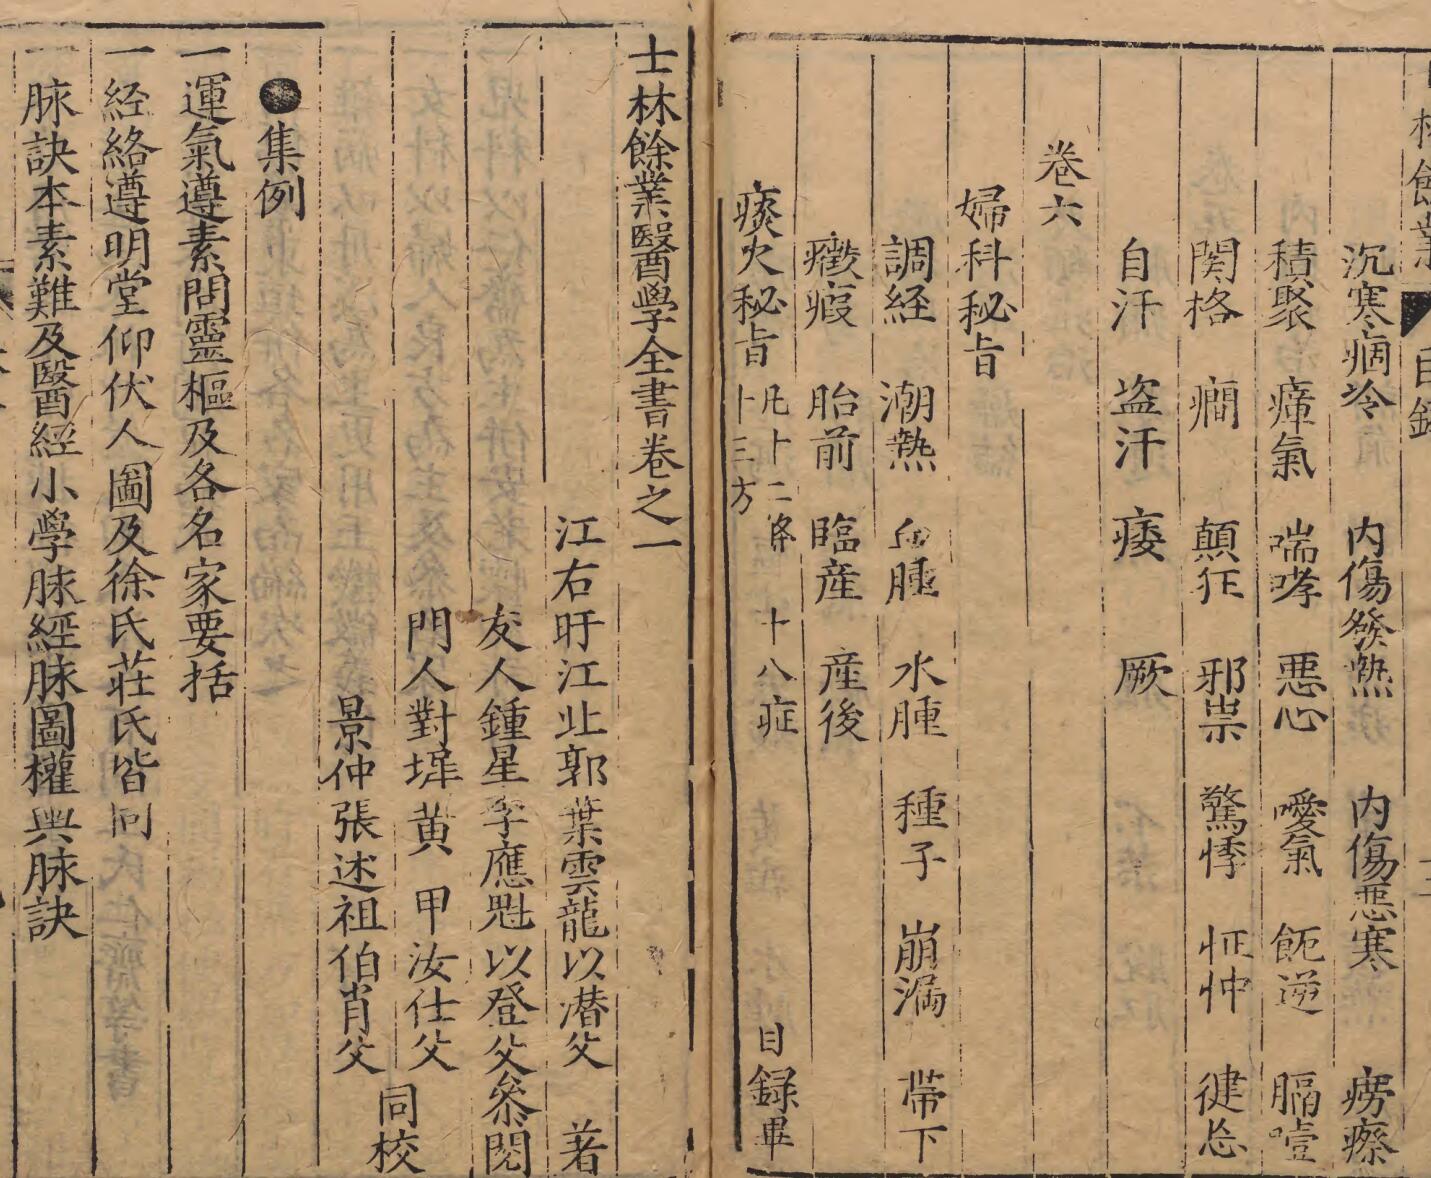 沉寒痼冷 内傷發熱 内傷惡寒 癆瘵
積聚 瘴氣 喘哮 惡心 噯氣 飥逆 膈噎
関格 癇 顛狂 邪祟 驚悸 怔忡 健忘
自汗 盗汗 痿 厥
卷六
婦科秘旨
調経 潮熱 血腫 水腫 種子 崩漏 帶下
癥瘕 胎前 臨産 産後
痰火秘旨 凡十二條 十八症
卜三方
目録畢
士林餘業醫學全書卷之一
江右盱江北郭葉雲龍以潛父 著
友人鍾星李應魁以登父叅閱
門人對墀黄 甲汝仕父
景仲張述祖伯肖父
同校
●集例
一運氣遵素問靈樞及各名家要括
一経絡遵明堂仰伏人圖及徐氏莊氏皆同
一脉訣本素難及醫經小學脉經脉圖權輿脉訣